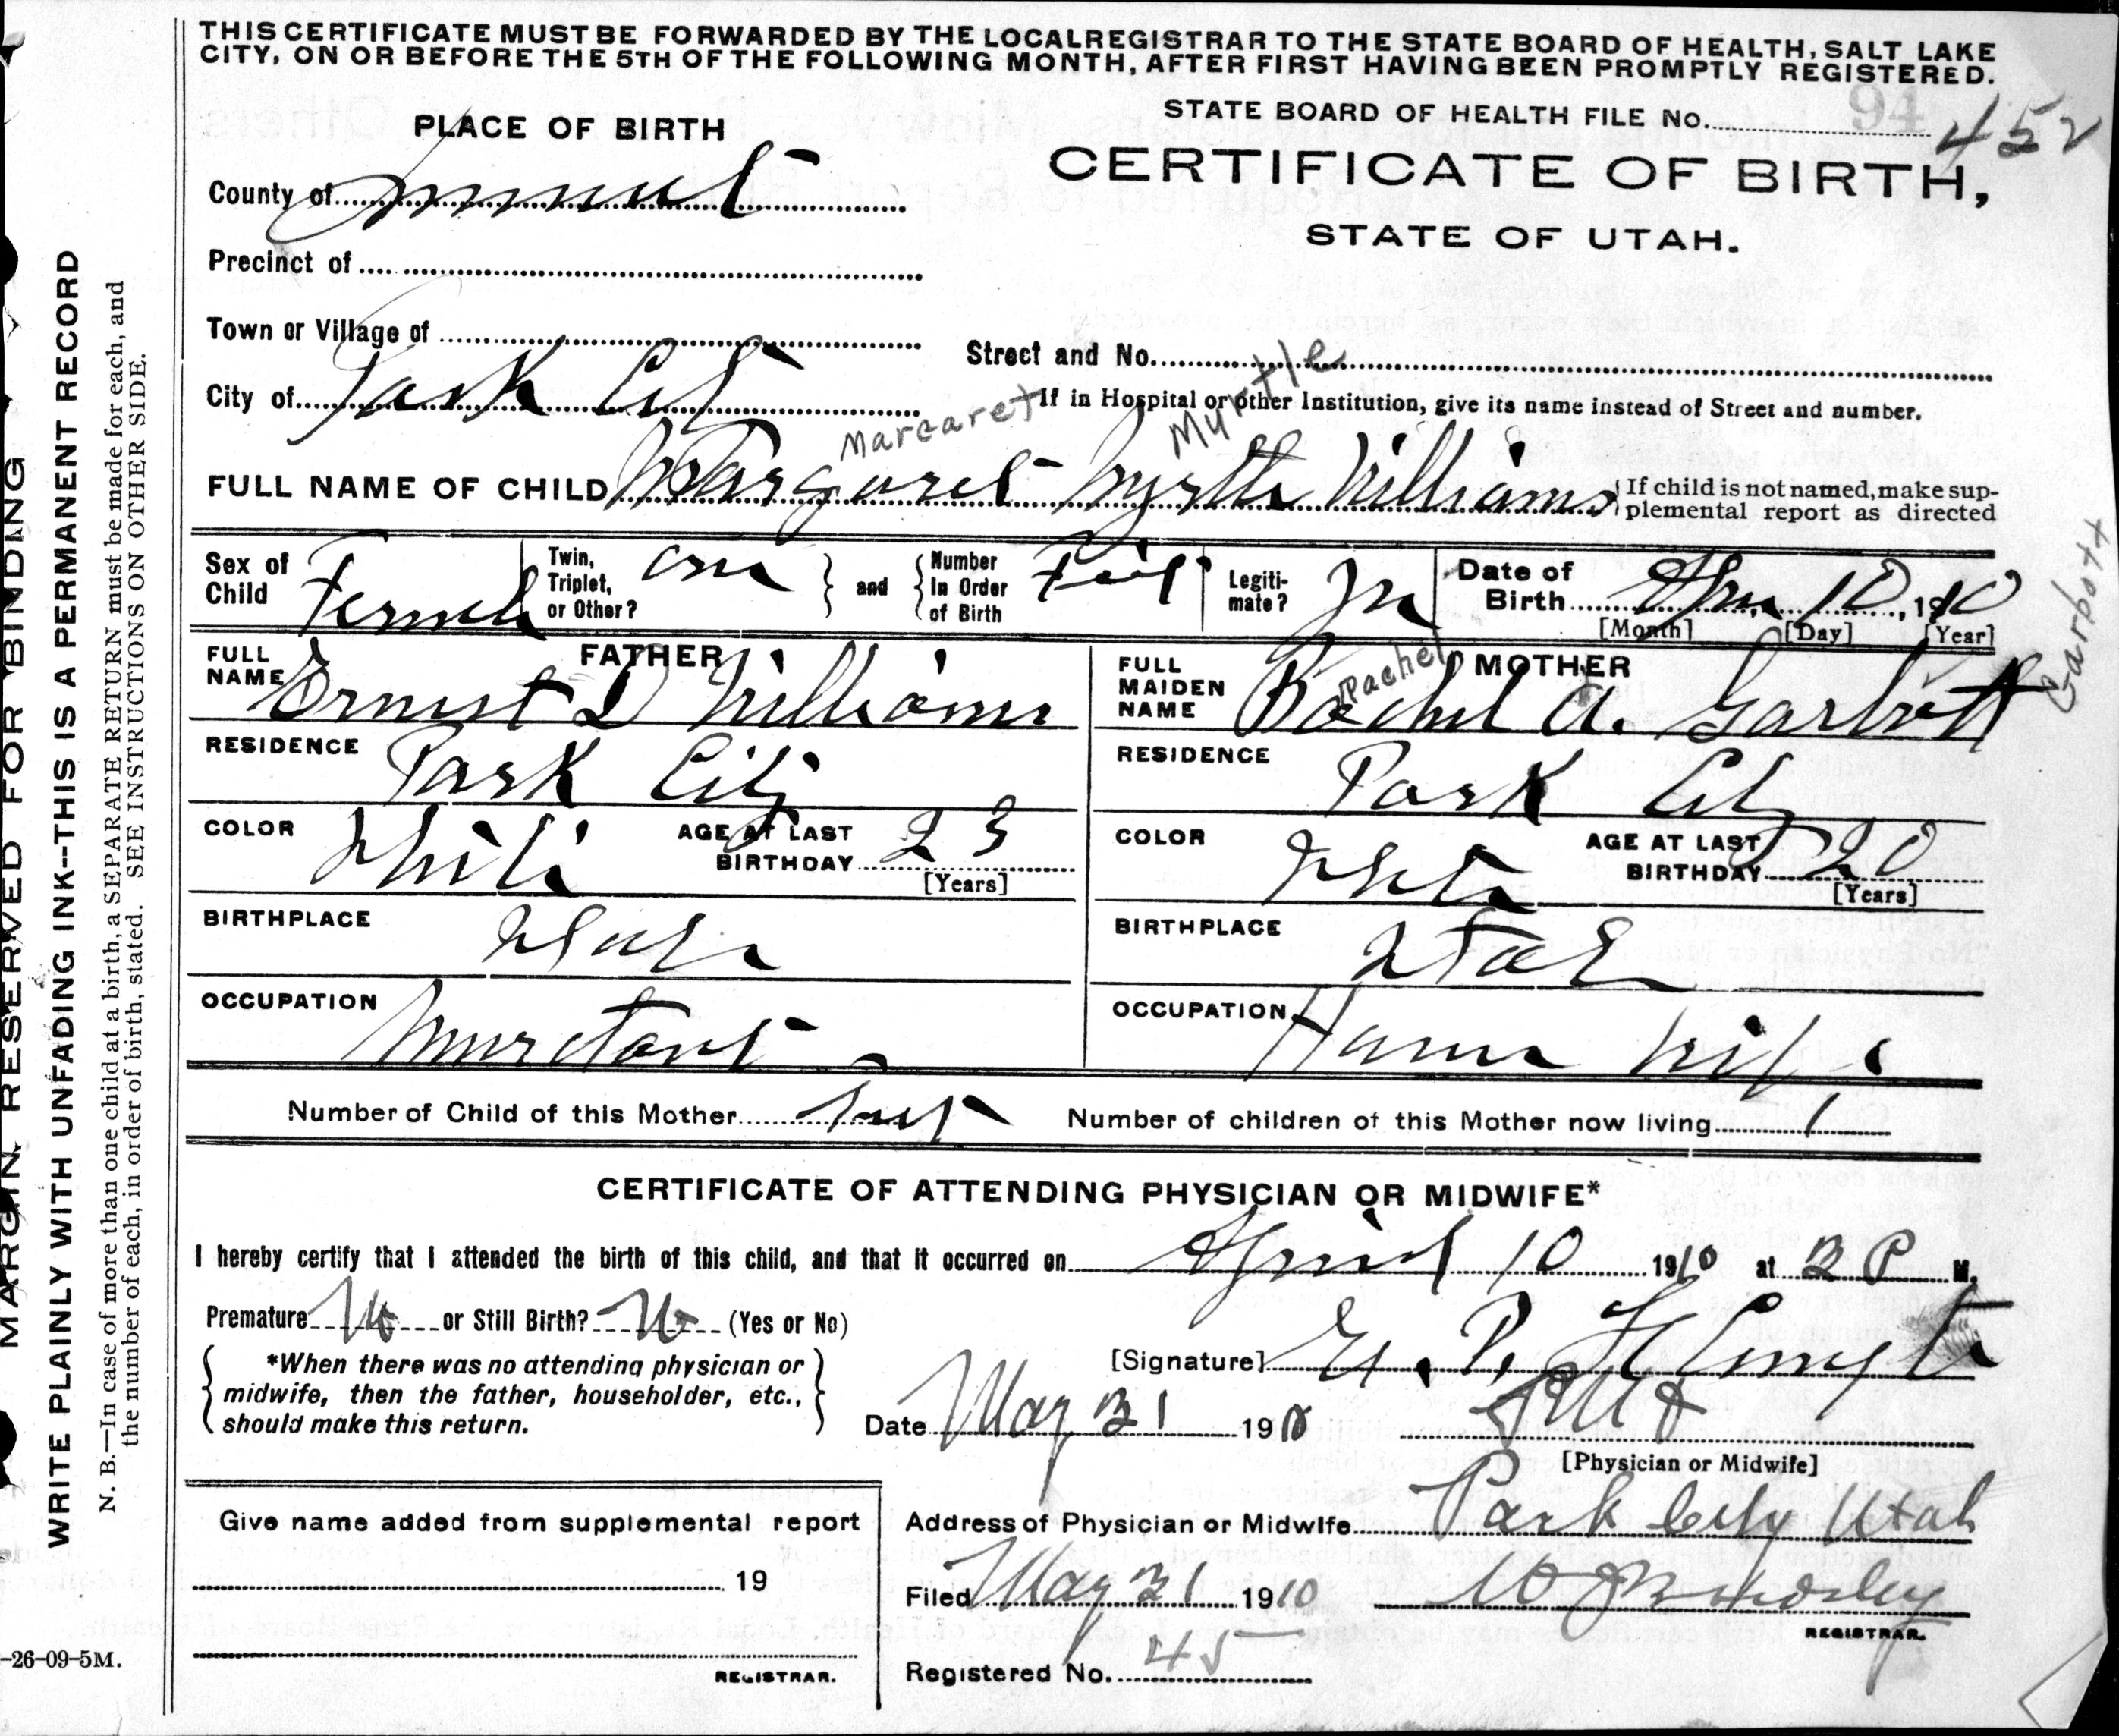 THIS CERTIFICATE MUST BE FORWARDED BY THE LOCAL REGISTRAR TO THE STATE BOARD OF HEALTH, SALT LAKE
CITY, ON OR BEFORE THE 5TH OF THE FOLLOWING MONTH, AFTER FIRST HAVING BEEN PROMPTLY REGISTERED.
STATE BOARD OF HEALTH FILE No. 94 452
PLACE OF BIRTH
CERTIFICATE OF BIRTH,
STATE OF UTAH.
County of Summit
Precinct of
Town or Village of
Street and No.
City of Park City
If in Hospital or other Institution, give its name instead of Street and number.
Margaret Myrtle
FULL NAME OF CHILD Margaret Myrtle Williams
If child is not named, make sup-
plemental report as directed
Sex of Child Female
Twin, Triplet, or Other? one
and
Number In Order of Birth First
Legiti-mate?
Date of Birth 10, 1910
[Month] [Day] [Year]
FATHER
FULL NAME Ernest D Williams
RESIDENCE Park City
COLOR White
AGE AT LAST BIRTHDAY 23
[Years]
BIRTHPLACE
OCCUPATION
MOTHER
FULL MAIDEN NAME Rachel A. Garbett
Rachel
Garbott
RESIDENCE Park City
COLOR White
AGE AT LAST BIRTHDAY 20
[Years]
BIRTHPLACE Utah
OCCUPATION House wife
Number of Child of this Mother
Number of children of this Mother now living 1
CERTIFICATE OF ATTENDING PHYSICIAN OR MIDWIFE*
I hereby certify that I attended the birth of this child, and that it occurred on April 10 1910 at 2 P M.
Premature No or Still Birth? No (Yes or No)
*When there was no attending physician or
midwife, then the father, householder, etc.,
should make this return.
[Signature] E. P.
Date May 31 1910
[Physician or Midwife]
Address of Physician or Midwife Park City Utah
Filed May 31 1910
REGISTRAR.
Registered No. 45
Give name added from supplemental report
19
REGISTRAR.
MARGIN RESERVED FOR BINDING
WRITE PLAINLY WITH UNFADING INK--THIS IS A PERMANENT RECORD
N. B.—In case of more than one child at a birth, a SEPARATE RETURN must be made for each, and
the number of each, in order of birth, stated. SEE INSTRUCTIONS ON OTHER SIDE.
-26-09-5M.